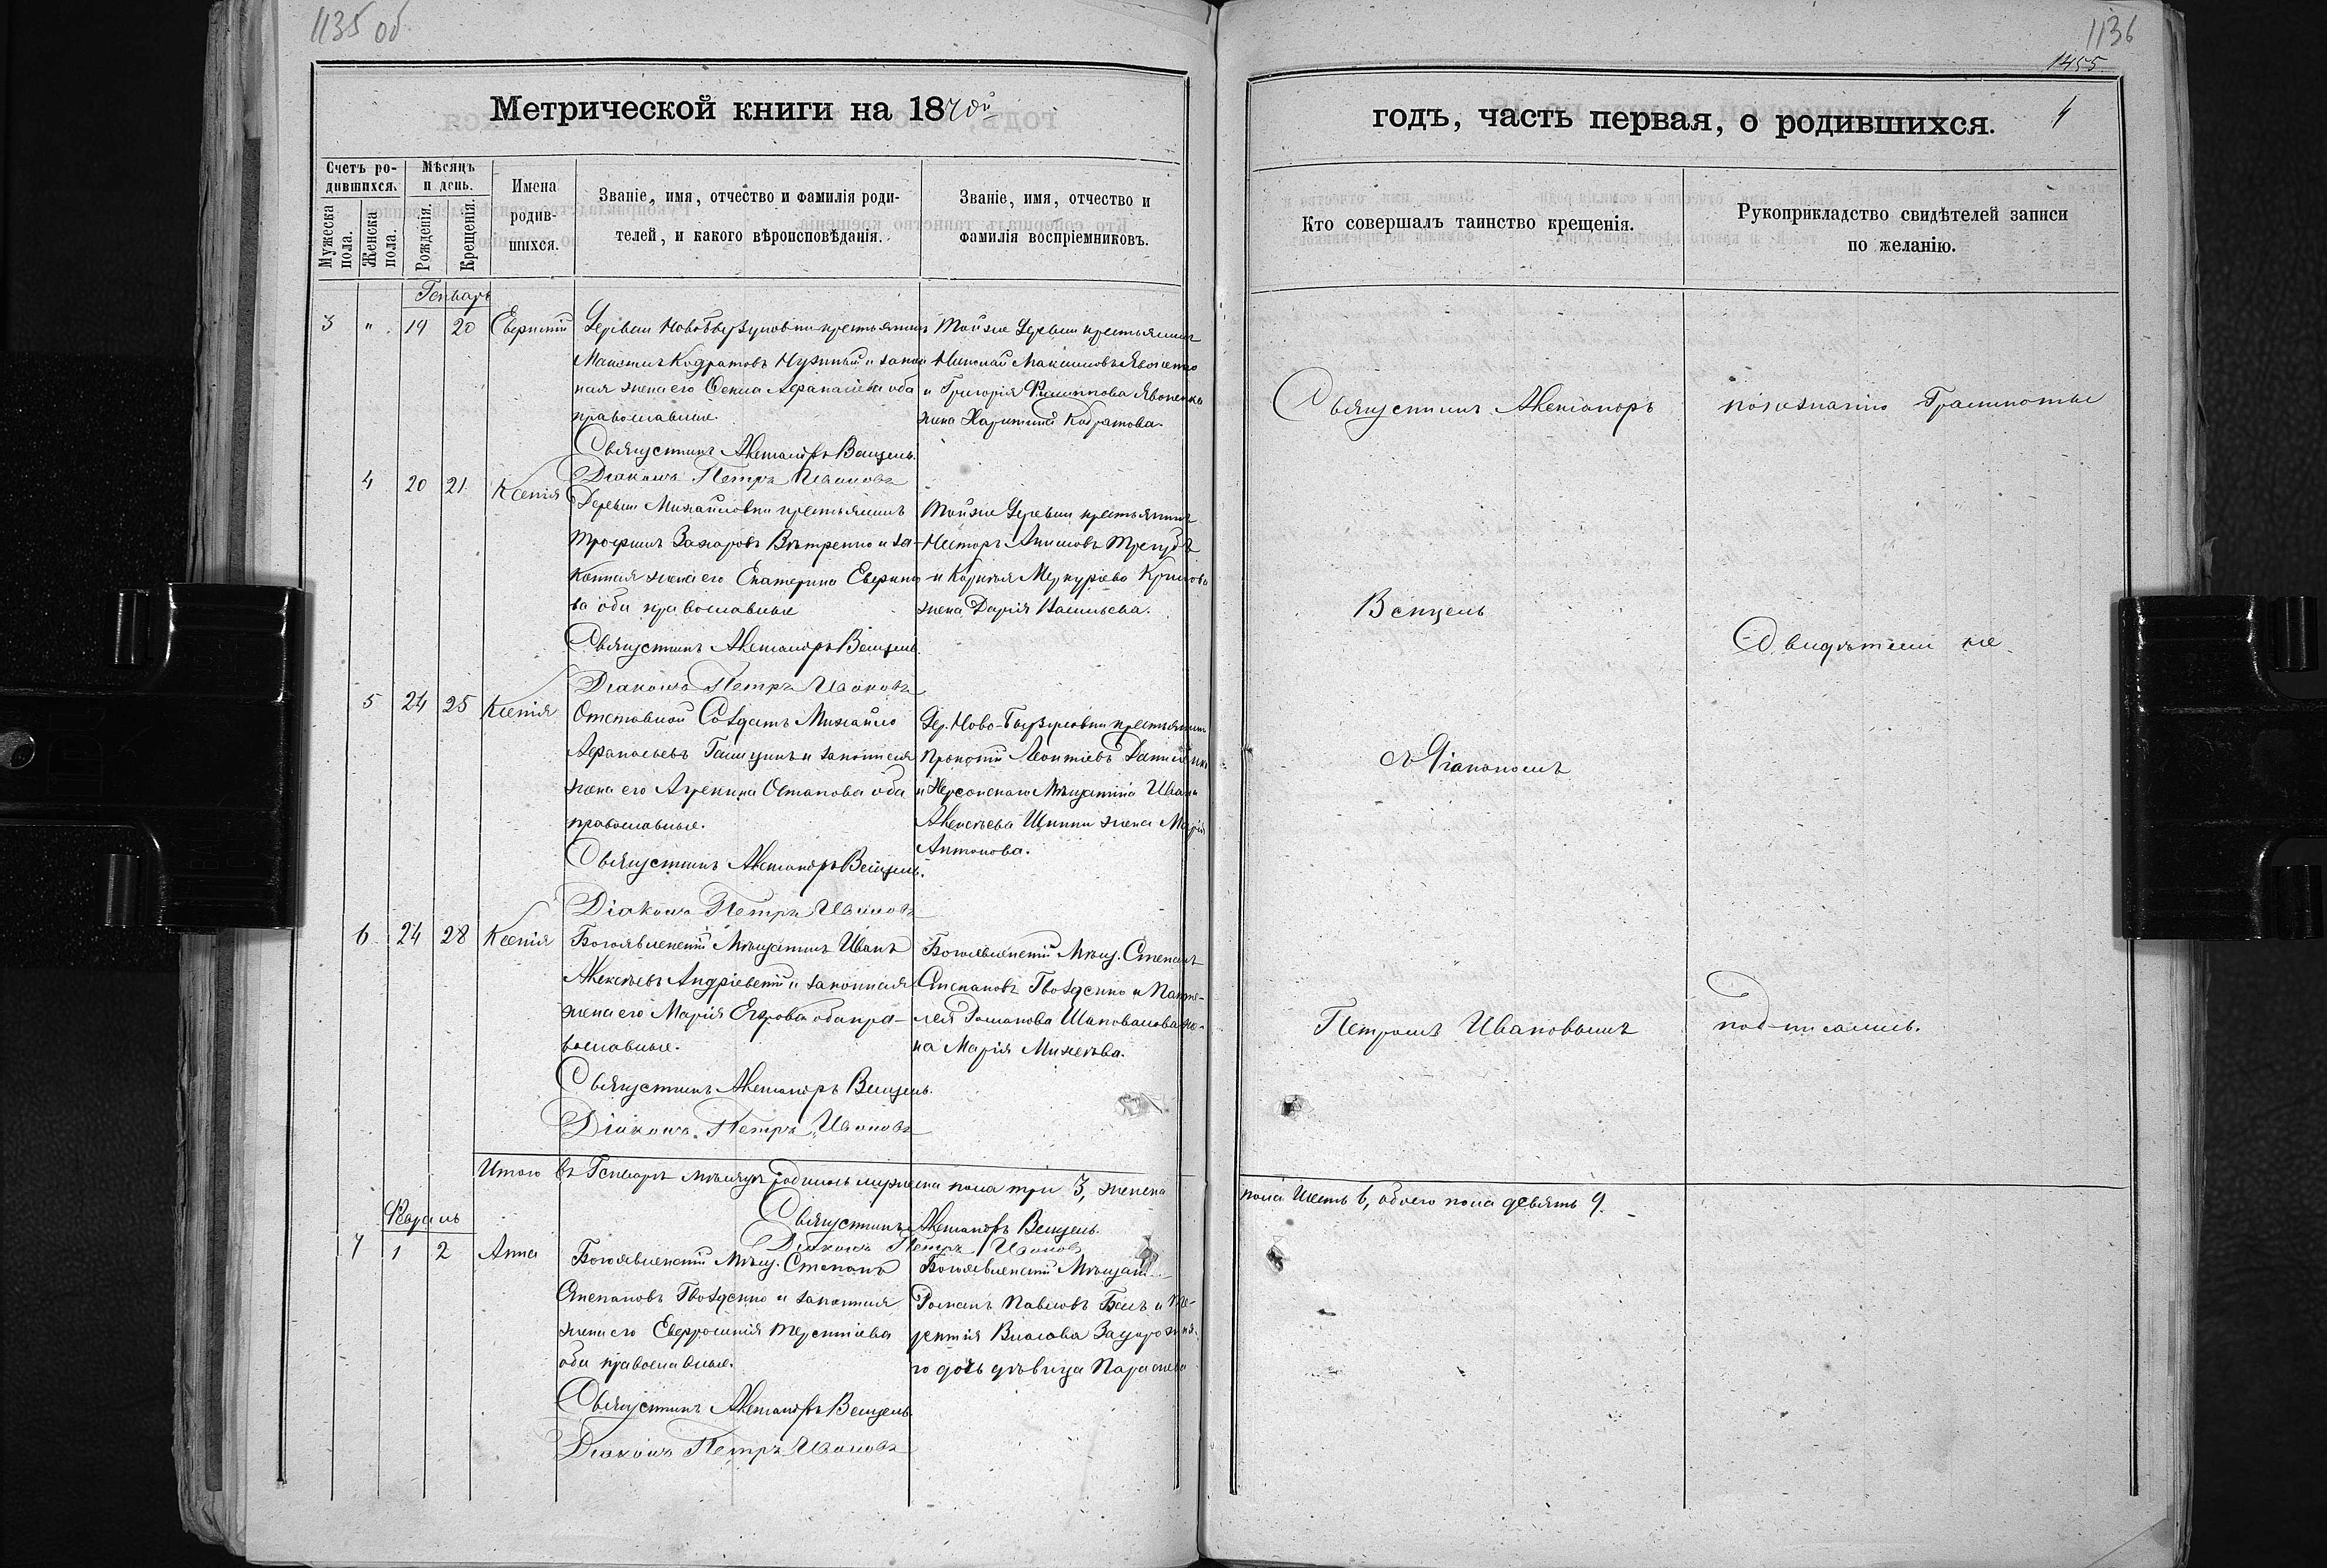 1135 об
Метрической книги на 1870й
Счетъ родившихся.
Мѣсяцъ и день.
Имена родившихся.
Званіе, имя, отчество и фамилія родителей, и какого вѣроисповѣданія.
Званіе, имя, отчество и фамилія воспріемниковъ.
Мужеска пола.
Женска пола.
Рожденія.
Крещенія.
Генварь
3 " 19 20
Деревни крестьянинъ
Максимъ Кодратовъ и закон
ная жена его Афанасіева оба
православные.
Той же Деревни крестьянинъ
Николай Максимовъ Явоненко
и Григорія Филиппова Явоненка
жена Харитина Кодратова.
Священникъ Александръ Венцель.
Діаконъ Петръ Ивановъ
4 20 21 Ксенія
Деревни Михайловки крестьянинъ
Трофимъ Захаровъ Вѣтренко и за-
конная жена его Екатерина
ва оба православные
Той же Деревни крестьянинъ
Несторъ
и Меркуріева
жена Дарія Васильева.
Священникъ Александръ Венцель
Діаконъ Петръ Ивановъ
5 24 25 Ксенія
Отставной Солдатъ Михайло
Афанасьевъ и законная
жена его Остапова оба
православные.
Дер. крестьянинъ
Прокопій Леонтіевъ
и Херсонскаго Мѣщанина Ивана
Алексѣева жена Марія
Антонова.
Священникъ Александръ Венцель.
Діаконъ Петръ Ивановъ
6 24 28 Ксенія
Богоявленскій Мѣщанинъ Иванъ
Алексѣевъ Андріевскій и законная
жена его Марія Егорова оба пра-
вославные.
Богоявленскій Мѣщ. Степанъ
Степановъ Гвозденко и Панте-
лея Романова Шаповалова же-
на Марія Михеѣва.
Священникъ Александръ Венцель.
Діаконъ Петръ Ивановъ
Итого въ Генварѣ мѣсяцѣ родилось мужеска пола три 3, женска
Священникъ Александръ Венцель.
Діаконъ Петръ Ивановъ
Февраль
7 1 2 Анна
Богоявленскій Мѣщ. Степанъ
Степановъ Гвозденко и законная
жена его Евфросинія Терентіева
оба православные.
Богоявленскій Мѣщан
Романъ Павловъ Бѣлъ и Те-
рентія Власова Задорожня-
го дочь дѣвица Параскева
Священникъ Александръ Венцель.
Діаконъ Петръ Ивановъ
1136
1455
годъ, часть первая, о родившихся.
4
Кто совершалъ таинство крещенія.
Рукоприкладство свидѣтелей записи по желанію.
Священникъ Александръ
Венцель
съ Діакономъ
Петромъ Ивановымъ
по незнанію Грамноты
Свидѣтели не
подписались.
пола Шесть 6, обоего пола девять 9.